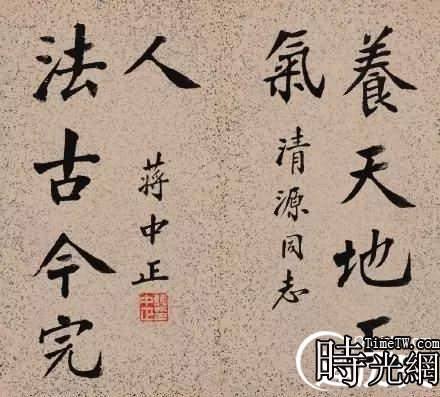 養天地正
氣
清源同志
法古今完
人
蔣中正
TimeTW.com
時光網